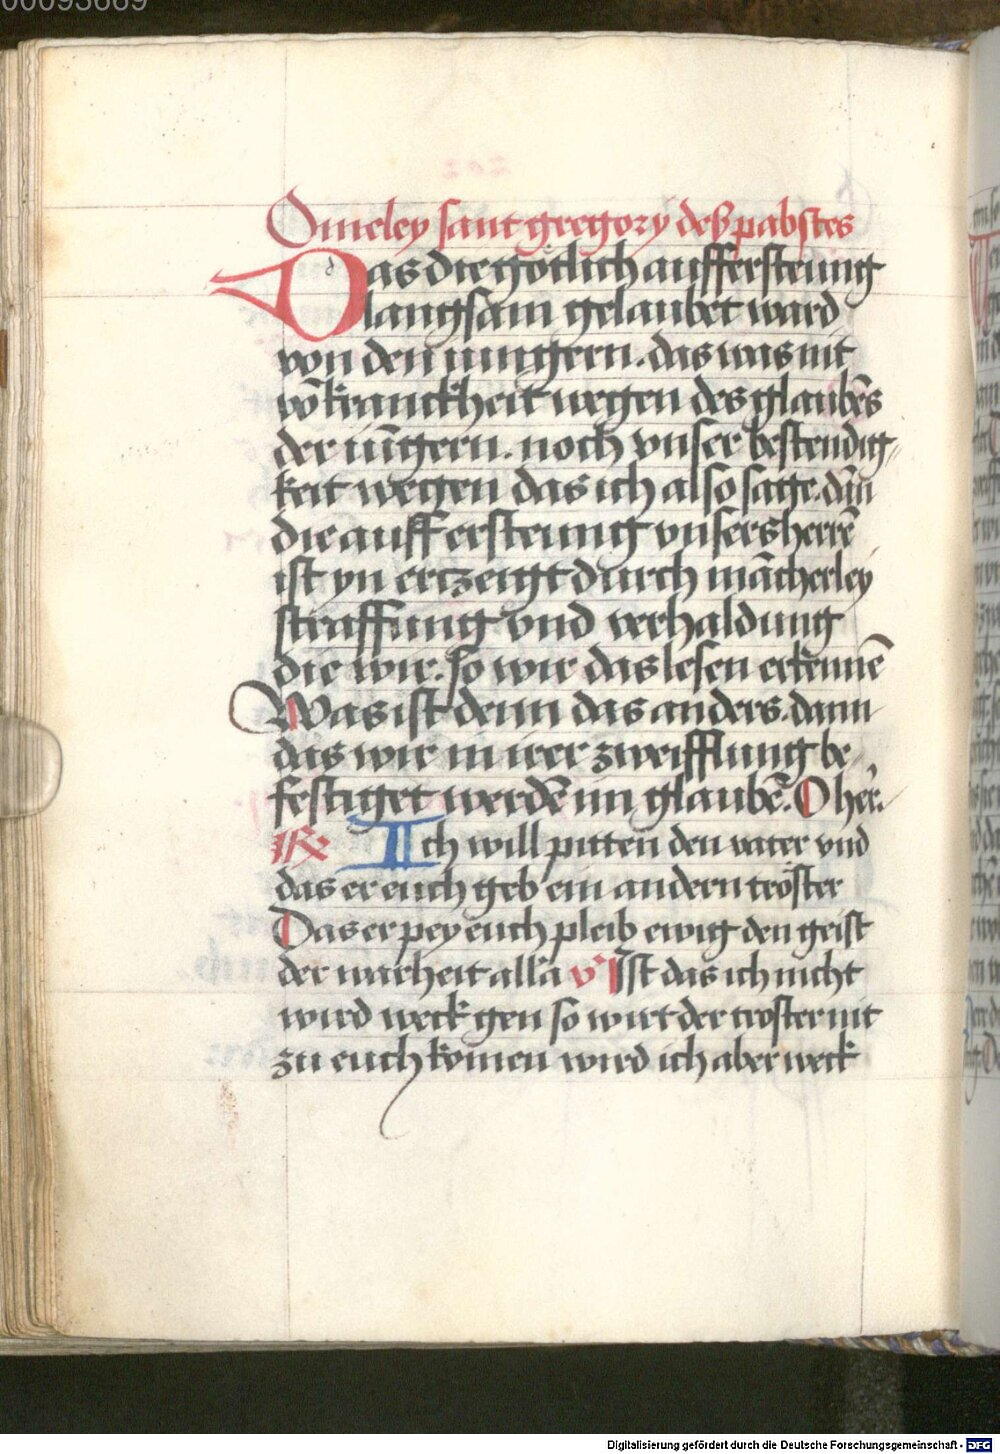 00093669
Omeley sant gregory deß pabstes
Das die götlich auffersteung
langsam gelaubet ward
von den iungern. das was nit
vō kranckheit wegen des glaubēs
der iūgern. noch vnser bestendig⸗
keit wegen das ich also sage. dān
die auffersteung vnsers herrē
ist yn ertzeigt durch mācherley
straffung vnd verhaldung
die wir. so wir das lesen erkennē
Was ist denn das anders. dann
das wir in irer zweifflung be⸗
festiget werdē im glaubē. O her̄.
℟ Ich will pitten den vater vnd
das er euch geb ein andern tröster
Das er pey euch pleib ewig den geist
der warheit alla v̓ Ist das ich nicht
wird weck gen so wirt der troster nit
zu euch komen wird ich aber weck
Digitalisierung gefördert durch die Deutsche Forschungsgemeinschaft - DFG